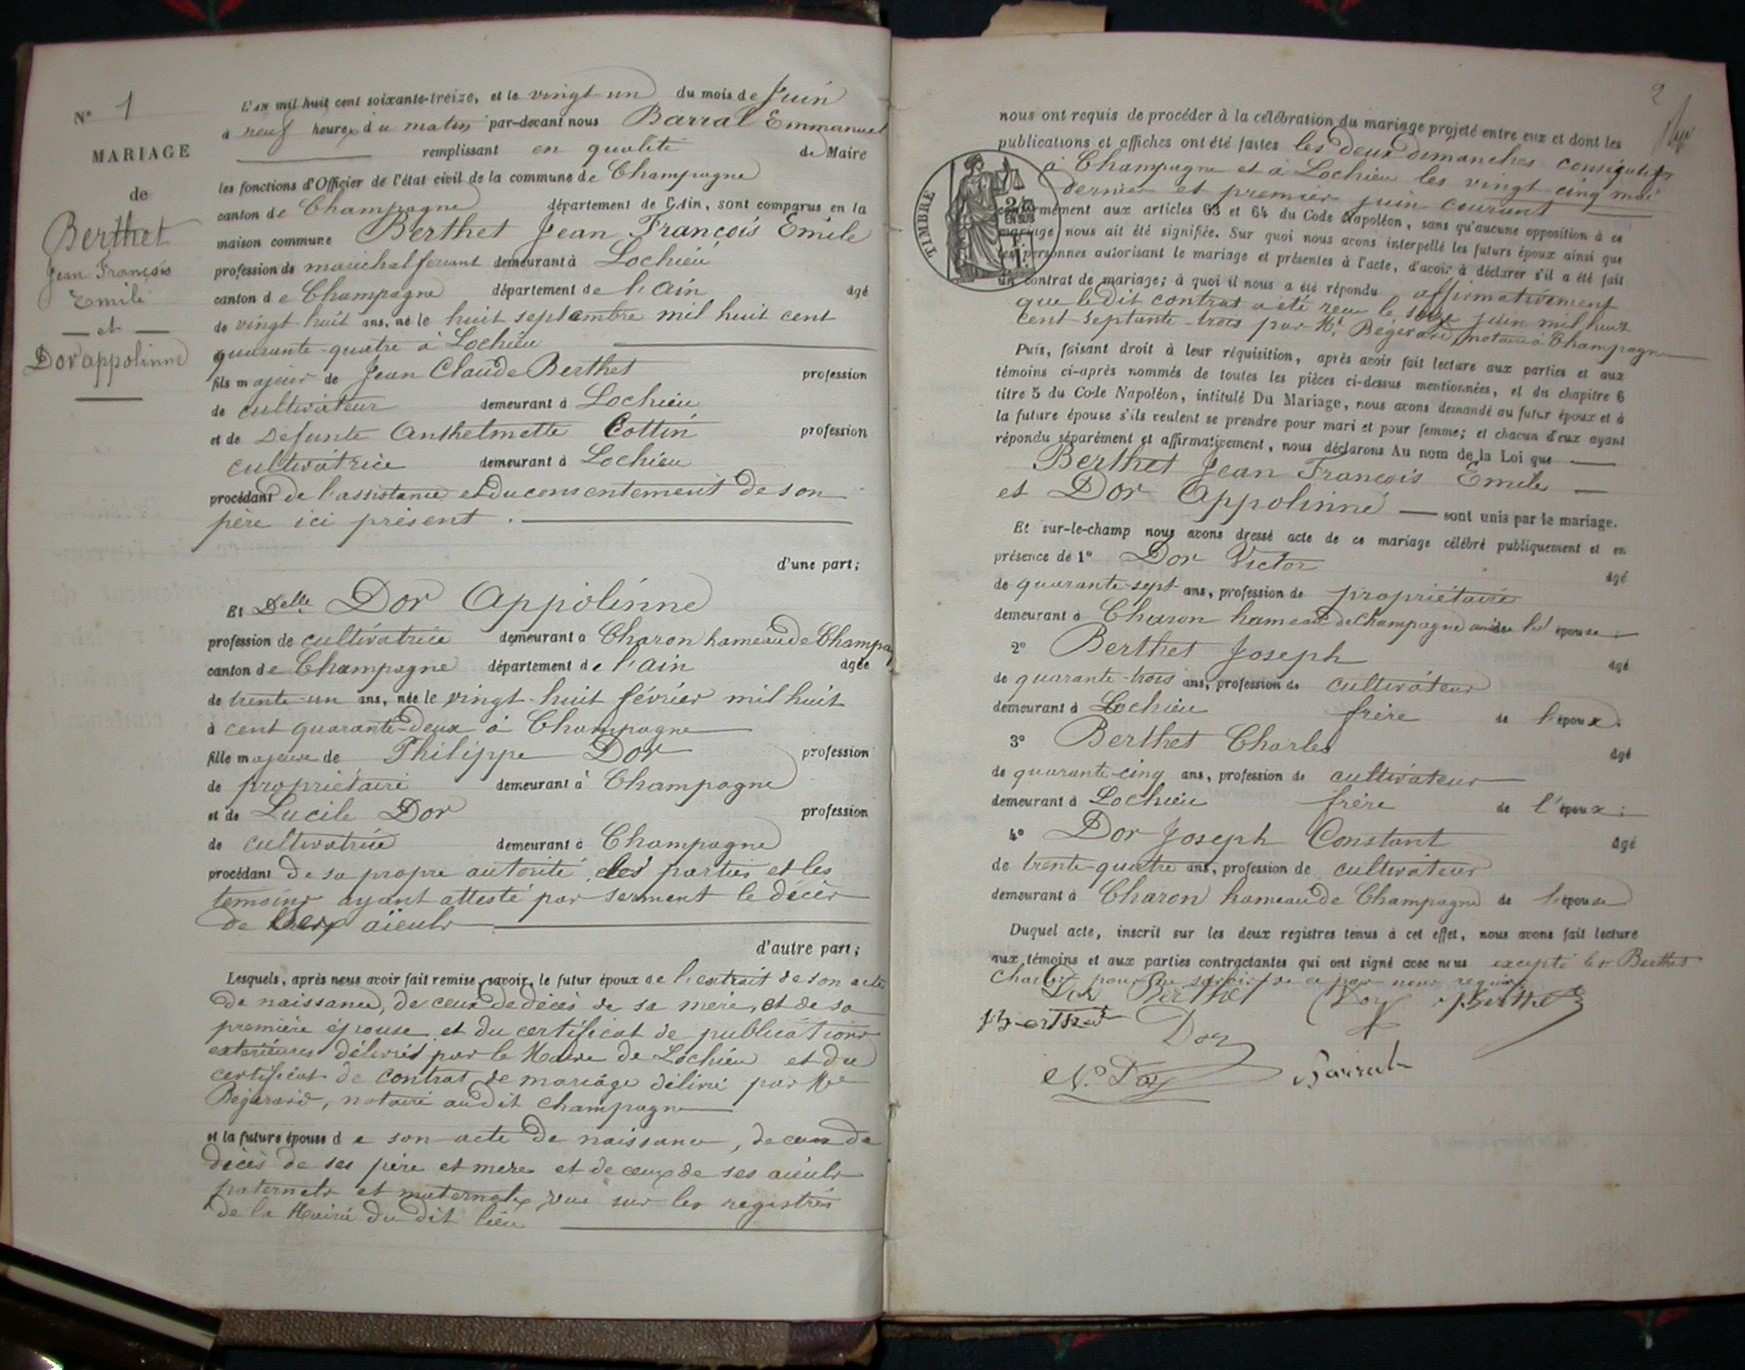 N° 1
MARIAGE
de
Berthet
Jean François
Emile
et
Dor appolinne
L'an mil huit cent soixante-treize, et le vingt un du mois de Juin
à neuf heures du matin par-devant nous Barral Emmanuel
remplissant en qualité de Maire
les fonctions d'Officier de l'état civil de la commune de Champagne
canton de Champagne département de l'Ain, sont comparus en la
maison commune Berthet Jean François Emile
profession de maréchal ferrant demeurant à Lochieu
canton de Champagne département de l'ain âgé
de vingt huit ans, né le huit septembre mil huit cent
quarante-quatre à Lochieu
fils majeur de Jean Claude Berthet profession
de cultivateur demeurant à Lochieu
et de Defunte Anthelmette Cottin profession
cultivatrice demeurant à Lochieu
procédant de l'assistance et du consentement de son
père ici présent.
d'une part;
Et Delle Dor Appolinne
profession de cultivatrice demeurant à Charon hameau de Champag
canton de Champagne département de l'ain âgée
de trente-un ans, née le vingt-huit février mil huit
à cent quarante-deux à Champagne
fille majeure de Philippe Dor profession
de propriétaire demeurant à Champagne
et de Lucile Dor profession
de cultivatrice demeurant à Champagne
procédant de sa propre autorité les parties et les
témoins ayant attesté par serment le décès
de aïeuls
d'autre part;
Lesquels, après nous avoir fait remise, savoir, le futur époux de l'extrait de son acte
de naissance, de ceux de décès de sa mère, et de sa
première épouse et du certificat de publications
exterieures délivrés par le Maire de Lochieu et du
certificat de contrat de mariage délivré par Me
Bégerard, notaire audit champagne
et la future épouse de son acte de naissance, de ceux de
décès de ses père et mère et de ceux de ses aïeuls
paternels et maternels, vus sur les registres
de la Mairie du dit lieu
2
nous ont requis de procéder à la célébration du mariage projeté entre eux et dont les
publications et affiches ont été faites les deux dimanches consécutifs
à Champagne et à Lochieu les vingt cinq mai
dernier et premier juin courant
conformément aux articles 63 et 64 du Code Napoléon, sans qu'aucune opposition à ce
mariage nous ait été signifiée. Sur quoi nous avons interpellé les futurs époux ainsi que
les personnes autorisant le mariage et présentes à l'acte, d'avoir à déclarer s'il a été fait
un contrat de mariage; à quoi il nous a été répondu affirmativement
que le dit contrat a été reçu le seize juin mil huit
cent-septante-trois par Me Bégerard, notaire à Champagne
TIMBRE
Puis, faisant droit à leur réquisition, après avoir fait lecture aux parties et aux
témoins ci-après nommés de toutes les pièces ci-dessus mentionnées, et du chapitre 6
titre 5 du Code Napoléon, intitulé Du Mariage, nous avons demandé au futur époux et à
la future épouse s'ils veulent se prendre pour mari et pour femme; et chacun d'eux ayant
répondu séparément et affirmativement, nous déclarons Au nom de la Loi que
Berthet Jean François Emile
et Dor Appolinne sont unis par le mariage.
Et sur-le-champ nous avons dressé acte de ce mariage célébré publiquement et en
présence de 1° Dor Victor âgé
de quarante-sept ans, profession de propriétaire
demeurant à Charon hameau de Champagne de l'épouse
2° Berthet Joseph âgé
de quarante-trois ans, profession de cultivateur
demeurant à Lochieu frère de l'époux.
3° Berthet Charles âgé
de quarante-cinq ans, profession de cultivateur
demeurant à Lochieu frère de l'époux;
4° Dor Joseph Constant âgé
de trente-quatre ans, profession de cultivateur
demeurant à Charon hameau de Champagne de l'épouse
Duquel acte, inscrit sur les deux registres tenus à cet effet, nous avons fait lecture
aux témoins et aux parties contractantes qui ont signé avec nous excepté le Sr Berthet
Charles pour ne savoir de ce par nous requis
Dor Berthet Dor Berthet
Berthet
Dor
Dor Barral